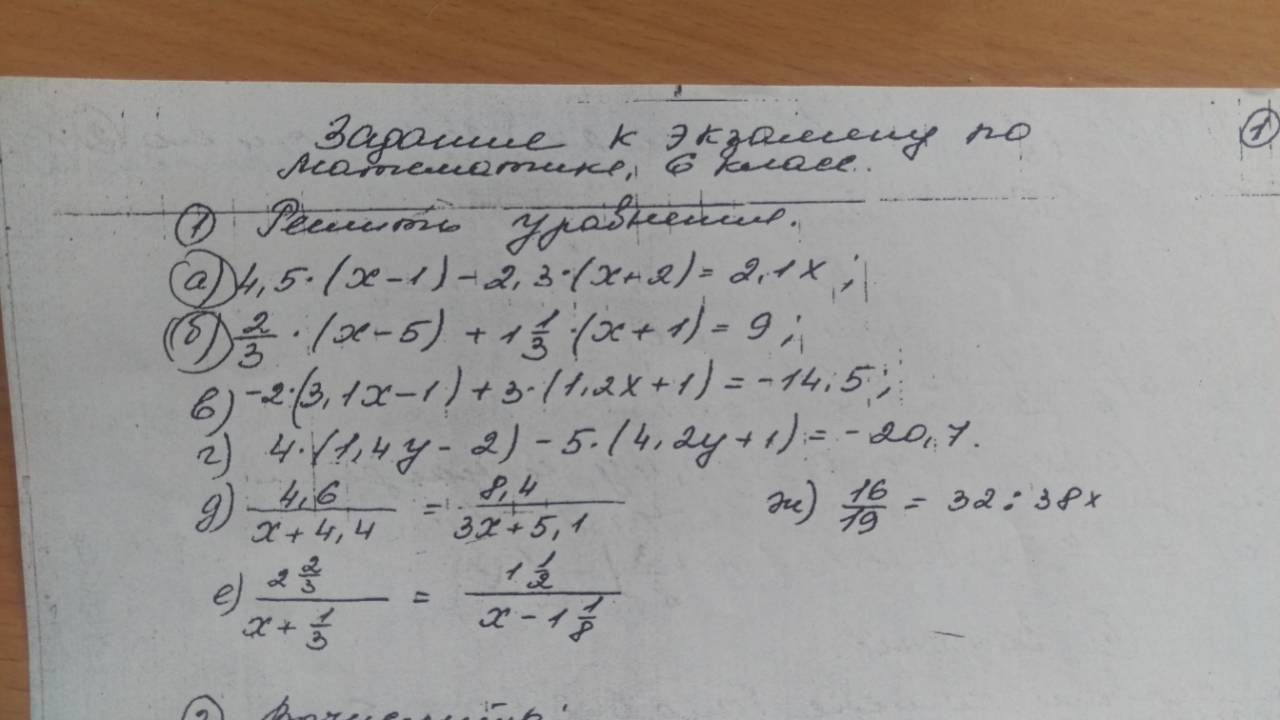 1
Задание к экзамену по
математике, 6 класс.
1 Решить уравнения.
а) 4,5·(x-1) - 2,3·(x+2) = 2,1x;
б) 2/3 ·(x-5) + 1 1/3 ·(x+1) = 9;
в) -2·(3,1x-1) + 3·(1,2x+1) = -14,5;
г) 4·(1,4y-2) - 5·(4,2y+1) = -20,7.
д) 4,6/(x+4,4) = 8,4/(3x+5,1) ж) 16/19 = 32:38x
е) 2 2/3/(x+1/3) = 1 1/2/(x-1 1/8)
2